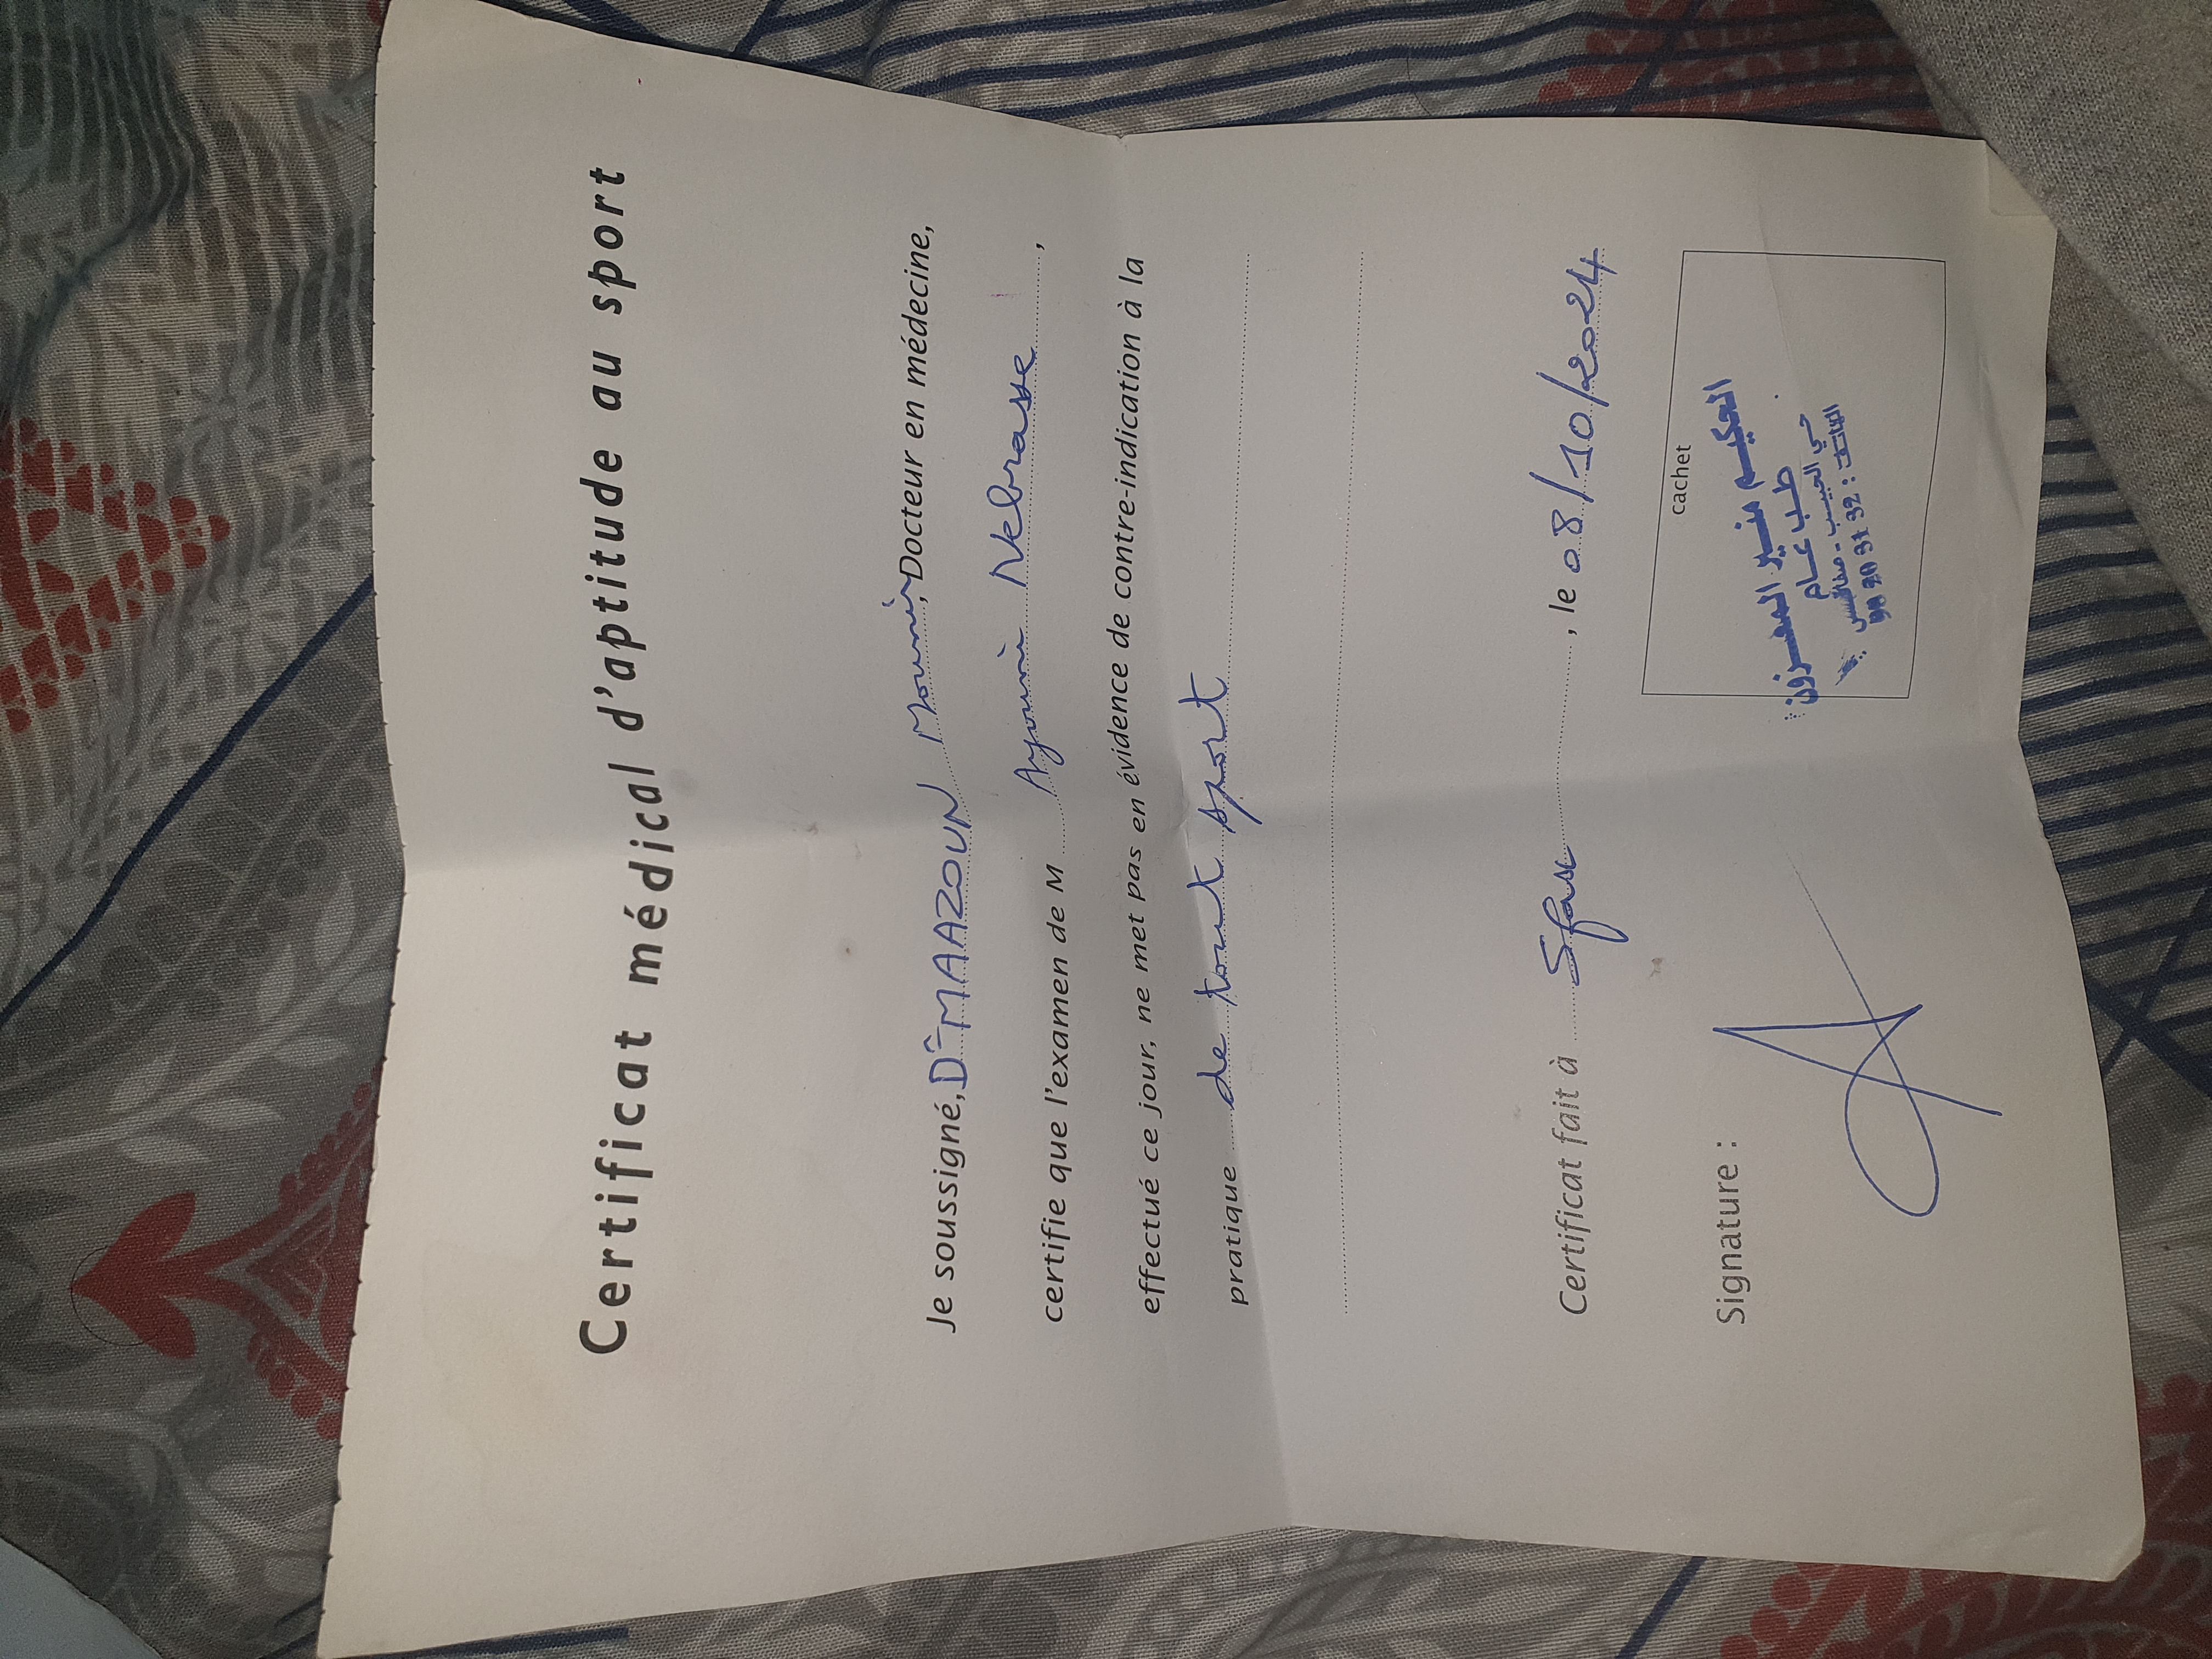 Certificat médical d'aptitude au sport
Je soussigné, Dr MAAZOUN Mounir, Docteur en médecine,
certifie que l'examen de M Ayouni Nebrasse,
effectué ce jour, ne met pas en évidence de contre-indication à la
pratique de tout sport
Certificat fait à Sfax, le 08/10/2024
Signature :
cachet
الحكيم منير المعزون
طب عام
حي الحبيب - صفاقس
الهاتف :